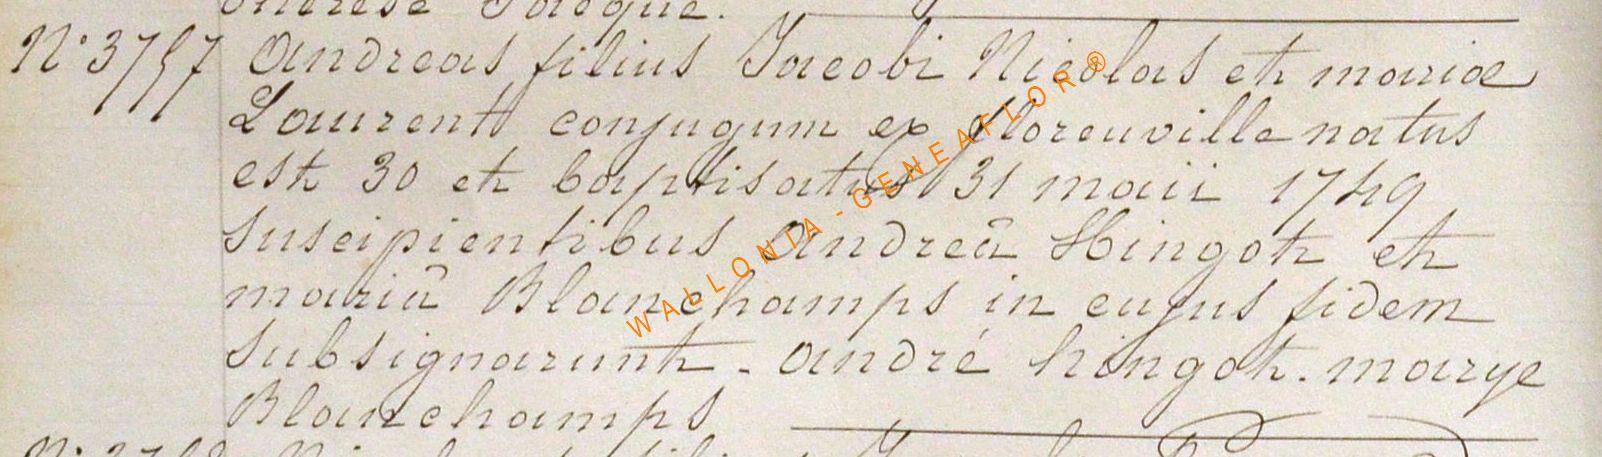 Thérèse Jacque.
N° 3757 Andreas filius Jacobi Nicolas et mariæ
Laurent conjugum ex floreuville natus
est 30 et baptisatus 31 maii 1749
suscipientibus Andreâ Hingot et
mariâ Blanchamps in cujus fidem
subsignarunt - André hingot. marye
Blanchamps
WALLONIA - GENEAFLOR®